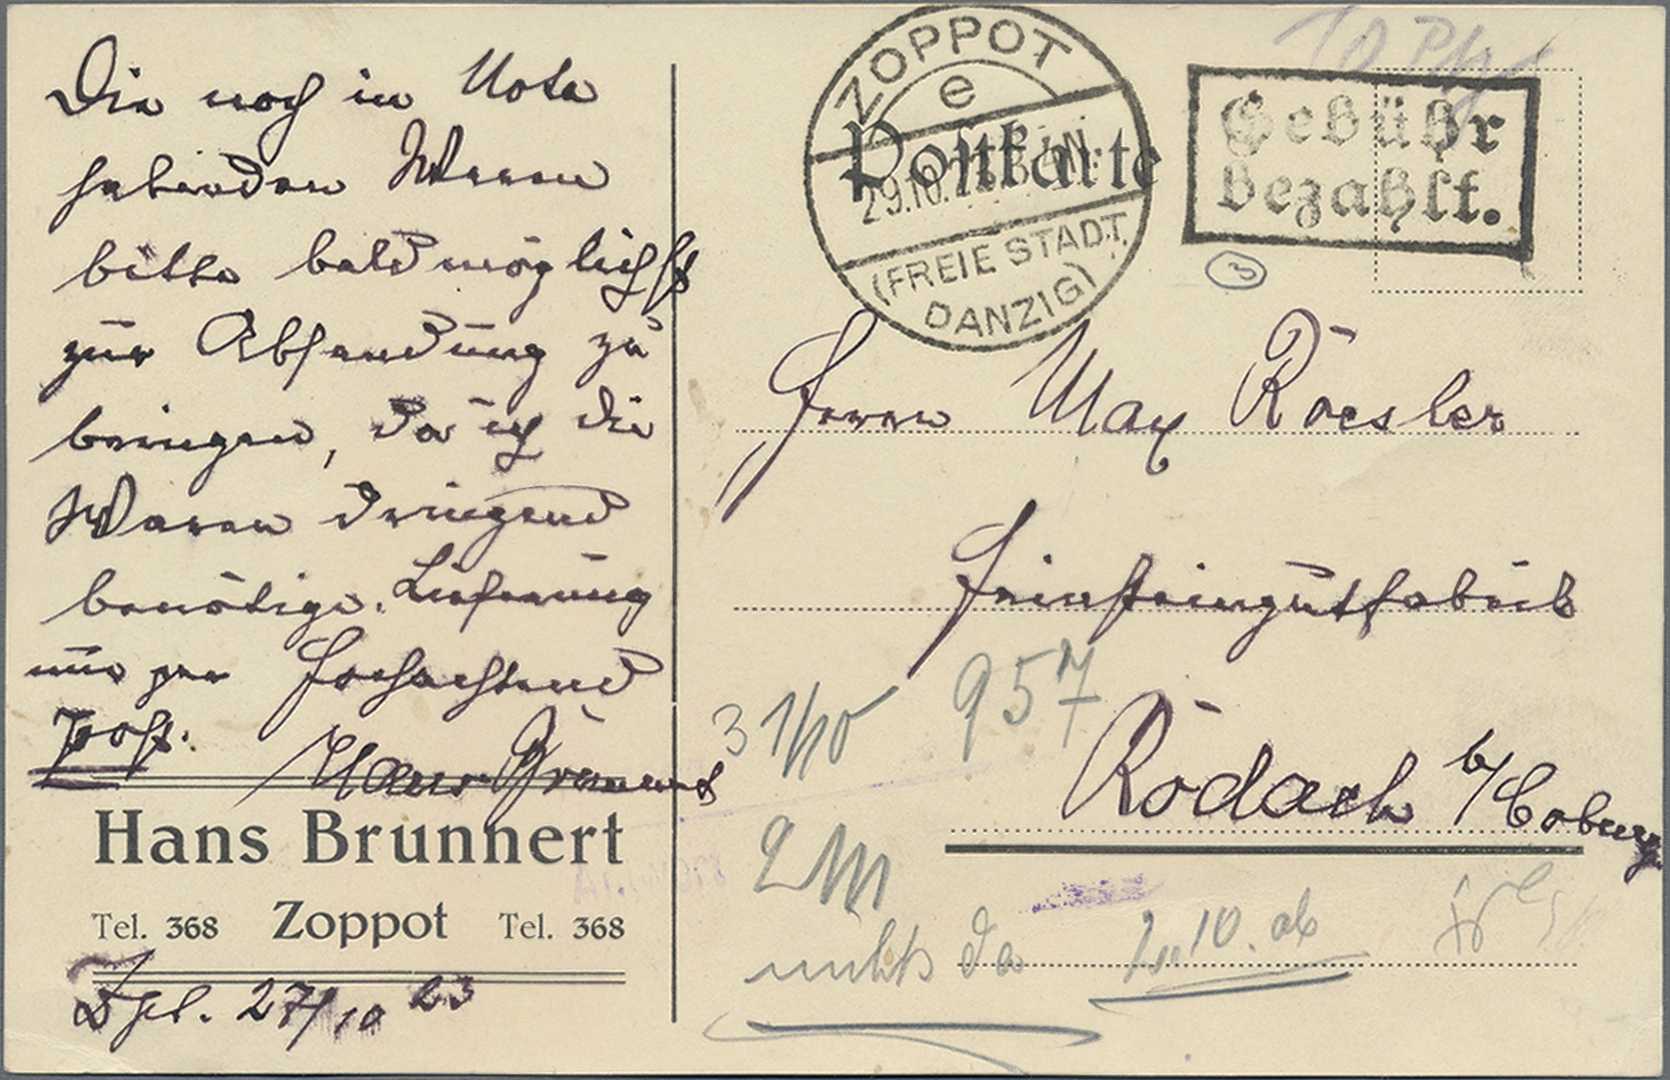 Die noch in Nota
habenden Waren
bitte baldmöglichst
zur Absendung zu
bringen, da ich die
Waren dringend
benötige. Lieferung
nur per Hochachtend
Post.
Hans Brunnert
Hans Brunnert
Tel. 368 Zoppot Tel. 368
Zpt. 27/10 23
ZOPPOT
e
29.10.
(FREIE STADT
DANZIG)
Postkarte
10 Pfg
Gebühr
bezahlt.
3
Herrn Max Roesler
Feinsteingutfabrik
Rodach b/Coburg
3 1/10
957
nichts da
10. ab